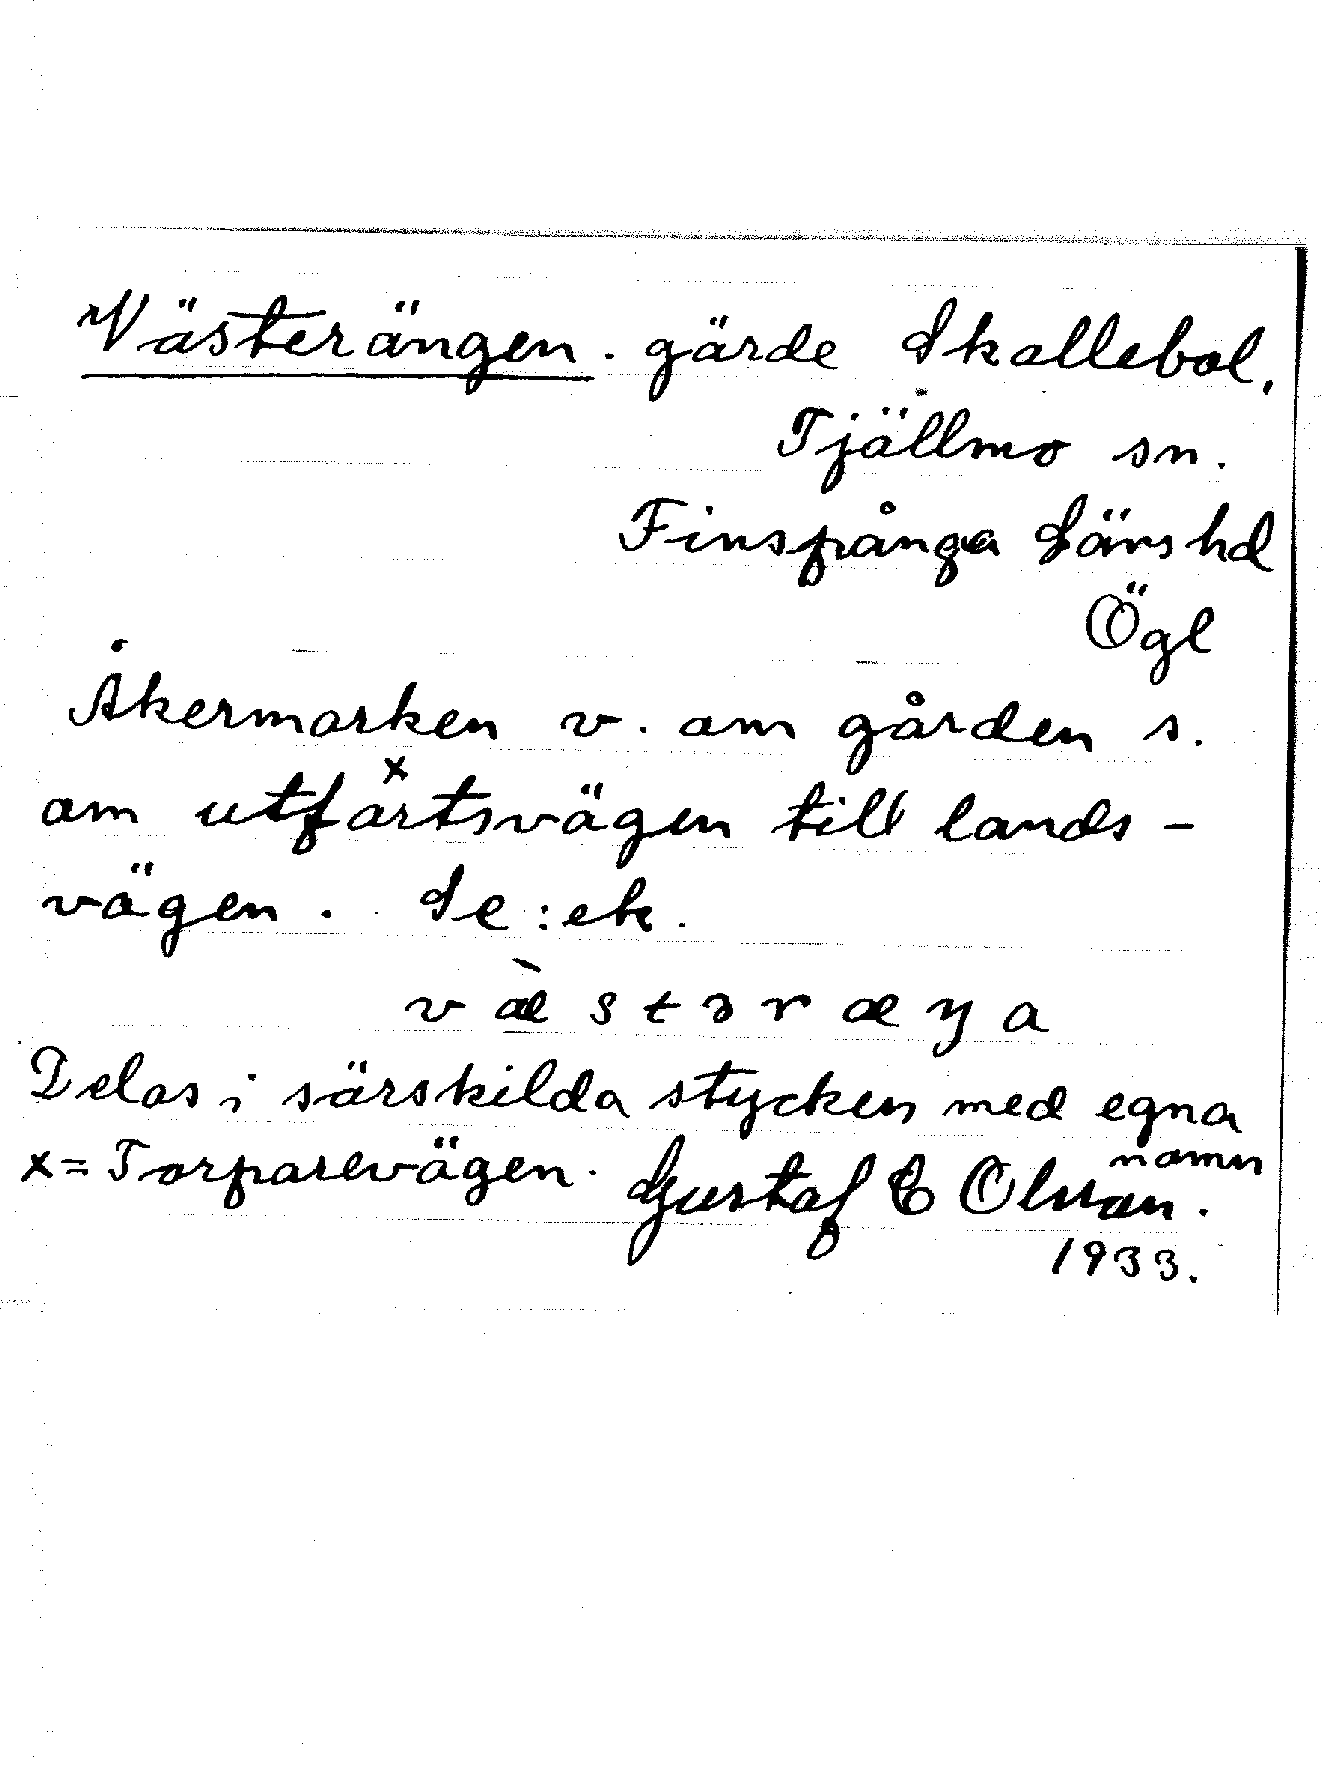 Västerängen. gärde Skallebol,
Tjällmo sn.
Finspånga Läns hd
Ögl
Åkermarken v. om gården s.
om utfartsvägen x till lands-
vägen. Se: ek.
væ̀stəræŋa
Delas i särskilda stycken med egna
namn
x = Torparevägen. Gustaf E Olsson.
1933.